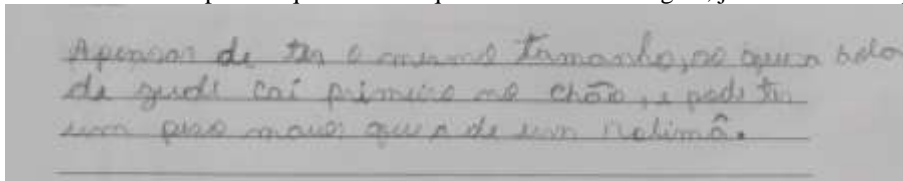 Apensar de ter o mesmo tamanho, so que a bola
de gude cai primeiro no chão, e pode ter
um peso maior que a de um rolimã.